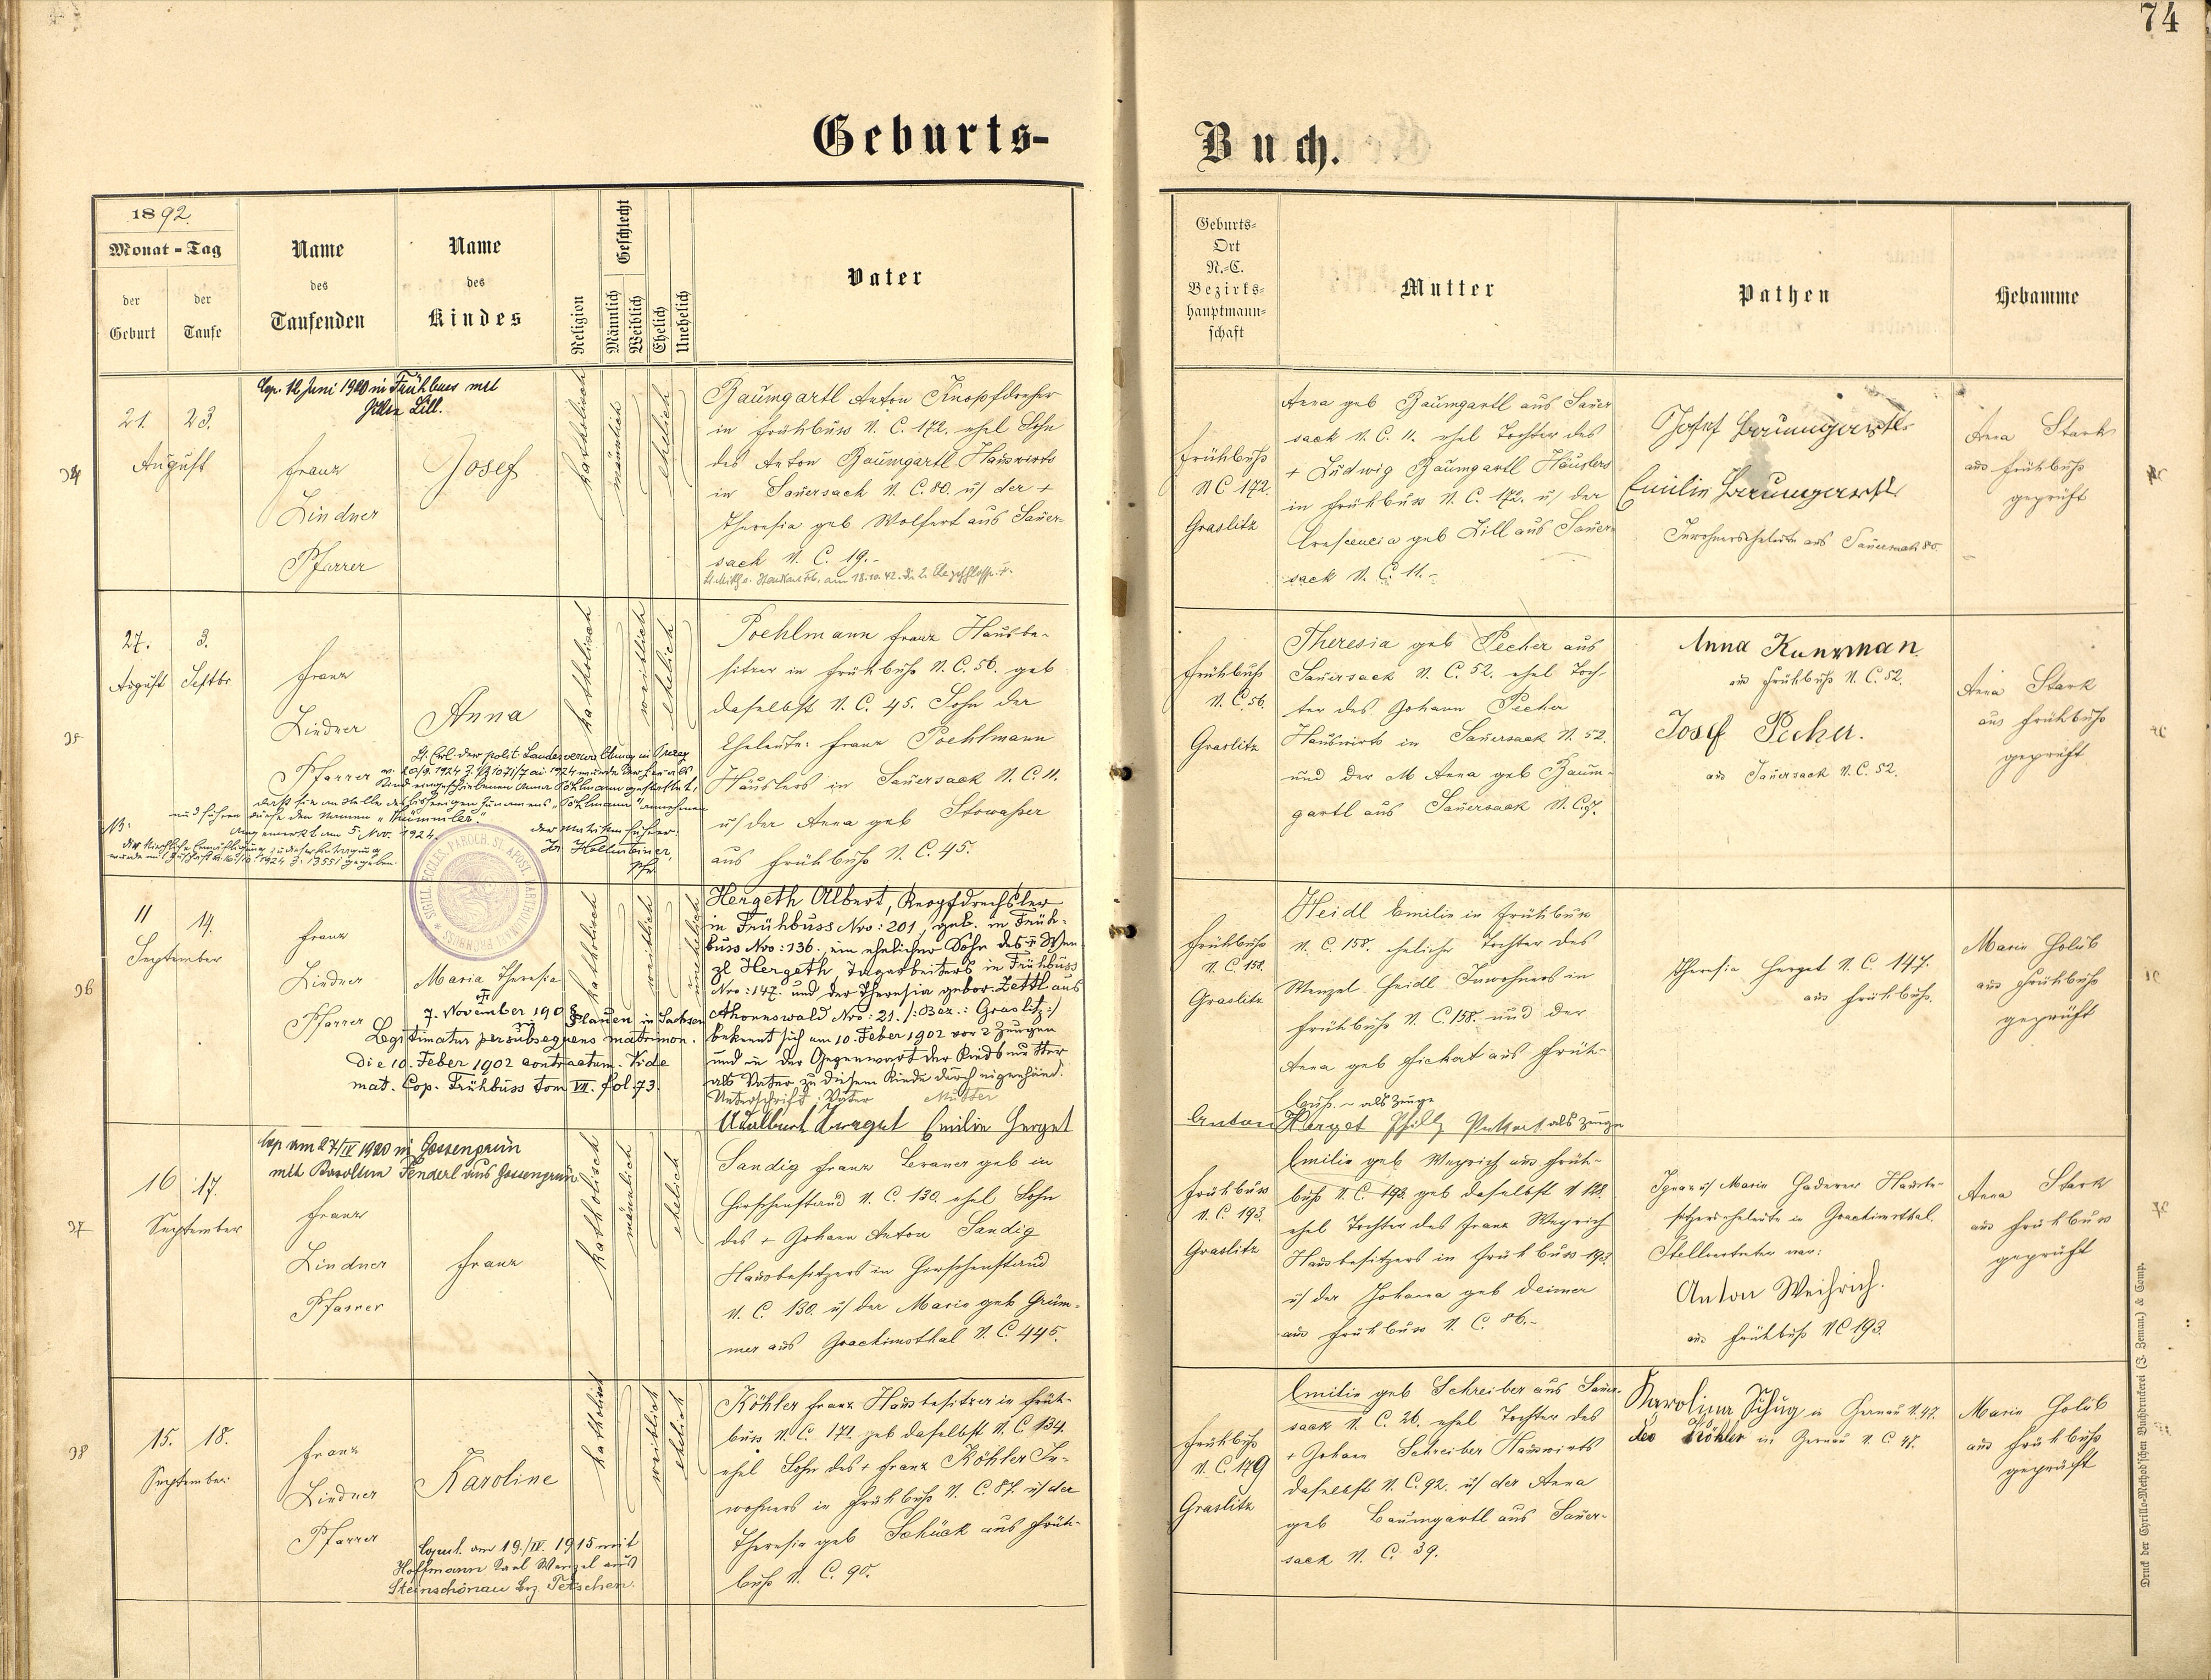 74
Geburts-
Buch.
1892.
Monat - Tag
der Geburt
der Taufe
Name des Taufenden
Name des Kindes
Religion
Geschlecht
Männlich
Weiblich
Ehelich
Unehelich
Vater
Geburts-
Ort
N.-C.
Bezirks-
hauptmann-
schaft
Mutter
Pathen
Hebamme
94
Cop. 12 Juni 1920 in Frühbuss mit
Lill.
21. 23.
August
Franz
Lindner
Pfarrer
Josef
katholisch
männlich
ehelich
Baumgartl Anton Knopfdreher
in Frühbuss N. C. 172. ehel Sohn
des Anton Baumgartl Hauswirts
in Sauersack N. C. 80. u/ der +
Theresia geb Wolfert aus Sauer-
sack N. C. 19.-
Frühbuß
N C 172.
Graslitz
Anna geb Baumgartl aus Sauer
sack N. C. 11. ehel Tochter des
+ Ludwig Baumgartl Häuslers
in Frühbuss N. C. 172. u/ der
Crescencia geb Lill aus Sauer-
sack N. C. 11.-
Josef Baumgartl
Emilie Baumgartl
Inwohnerseheleute aus Sauersack 80.
Anna Stark
aus Frühbuß
geprüft
95
27. 3.
August Septbr
Franz
Lindner
Pfarrer
Anna
katholisch
weiblich
ehelich
Lt. Erl. der polit. Landesverwaltung in Prag
v. 20/9. 1924 wurde der hier als
Kind eingeschriebenen Anna Pöhlmann gestattet,
daß sie an Stelle des bisherigen Zunamens "Pöhlmann" annehmen
und führen dürfe den Namen
Angemerkt am 5. Nov. 1924.
der Matrikenführer:
Pfr.
SIGILL. ECCLES. PAROCH. ST. APOST. BARTHOLOMAEI FRÜHBUSS
Poehlmann Franz Hausbe-
sitzer in Frühbuß N. C. 56. geb
daselbst N. C. 45. Sohn der
Eheleute: Franz Poehlmann
Häuslers in Sauersack N. C. 11.
u/ der Anna geb Stowasser
aus Frühbuß N. C. 45.
Frühbuß
N. C. 56.
Graslitz
Theresia geb Pecher aus
Sauersack N. C. 52. ehel Toch-
ter des Johann Pecher
Hauswirts in Sauersack N. 52.
und der M Anna geb Baum-
gartl aus Sauersack N. C. 97.
Anna Kunzman
aus Frühbuß N. C. 52.
Josef Pecher.
aus Sauersack N. C. 52.
Anna Stark
aus Frühbuß
geprüft
96
11 14.
September
Franz
Lindner
Pfarrer
Maria Theresia
7. November 190 Plauen in Sachsen
Legitimatur per subsequens matrimon.
die 10. Feber 1902 contractum. Vide
mat. Cop. Frühbuss tom VII. fol. 73.
katholisch
weiblich
unehelich
Hergeth Albert, Knopfdrechsler
in Frühbuss Nro: 201, geb. in Früh-
buss Nro: 136. ein ehelicher Sohn des + Wen
zl Hergeth, Tagarbeiters in Frühbuss
Nro: 147. und der Theresia gebor. Zettl aus
Ahornswald Nro: 21. /: Bez.: Graslitz:/
bekennt sich am 10. Feber 1902 vor 2 Zeugen
und in der Gegenwart der Kindsmutter
als Vater zu diesem Kinde durch eigenhänd.
Unterschrift: Vater Mutter
Adalbert Herget Emilie Herget
Frühbuß
N. C. 158.
Graslitz
Heidl Emilie in Frühbuss
N. C. 158. eheliche Tochter des
Wenzel Heidl Inwohners in
Frühbuß N. C. 158. und der
Anna geb Fickert aus Früh-
buß. - als Zeuge
Anton Herget als Zeuge
Theresia Herget N. C. 147.
aus Frühbuß.
Marie Holub
aus Frühbuß
geprüft
97
Cop am 27/IV 1920 in Gossengrün
mit Karoline aus Gossengrün
16 17.
September
Franz
Lindner
Pfarrer
Franz
katholisch
männlich
ehelich
Sandig Franz geb in
Hirschenstand N. C. 130. ehel Sohn
des + Johann Anton Sandig
Hausbesitzers in Hirschenstand
N. C. 130. u/ der Marie geb Grüm-
mer aus Joachimsthal N. C. 445.
Frühbuss
N. C. 193.
Graslitz
Emilie geb Weyrich aus Früh-
buß N. C. 193. geb daselbst N 128.
ehel Tochter des Franz Weyrich
Hausbesitzers in Frühbuss 193.
u/ der Johanna geb Deimer
aus Frühbuss N. C. 86.-
Ignaz u/ Marie Haderer Hausbe-
sitzerseheleute in Joachimsthal.
Stellvertreter war:
Anton Weihrich.
aus Frühbuß N C 193.
Anna Stark
aus Frühbuss
geprüft
98
15. 18.
September
Franz
Lindner
Pfarrer
Karoline
Copul. am 19./IV. 1915 mit
Hoffmann Karl Wenzel aus
Steinschönau Bez Tetschen.
katholisch
weiblich
ehelich
Köhler Franz Hausbesitzer in Früh-
buss N. C. 171. geb daselbst N. C. 134.
ehel Sohn des + Franz Köhler In-
wohners in Frühbuß N. C. 87. u/ der
Theresia geb Schück aus Früh-
buß N. C. 90.
Frühbuß
N. C. 179
Graslitz
Emilie geb Schreiber aus Sauer-
sack N. C. 26. ehel Tochter des
+ Johann Schreiber Hauswirts
daselbst N. C. 92. u/ der Anna
geb Baumgartl aus Sauer-
sack N. C. 39.
Karolina Schug in N. 47.
Köhler in N. C. 47.
Marie Holub
aus Frühbuß
geprüft
Druck der Cyrillo-Method'schen Buchdruckerei (J. Zeman) & Comp.